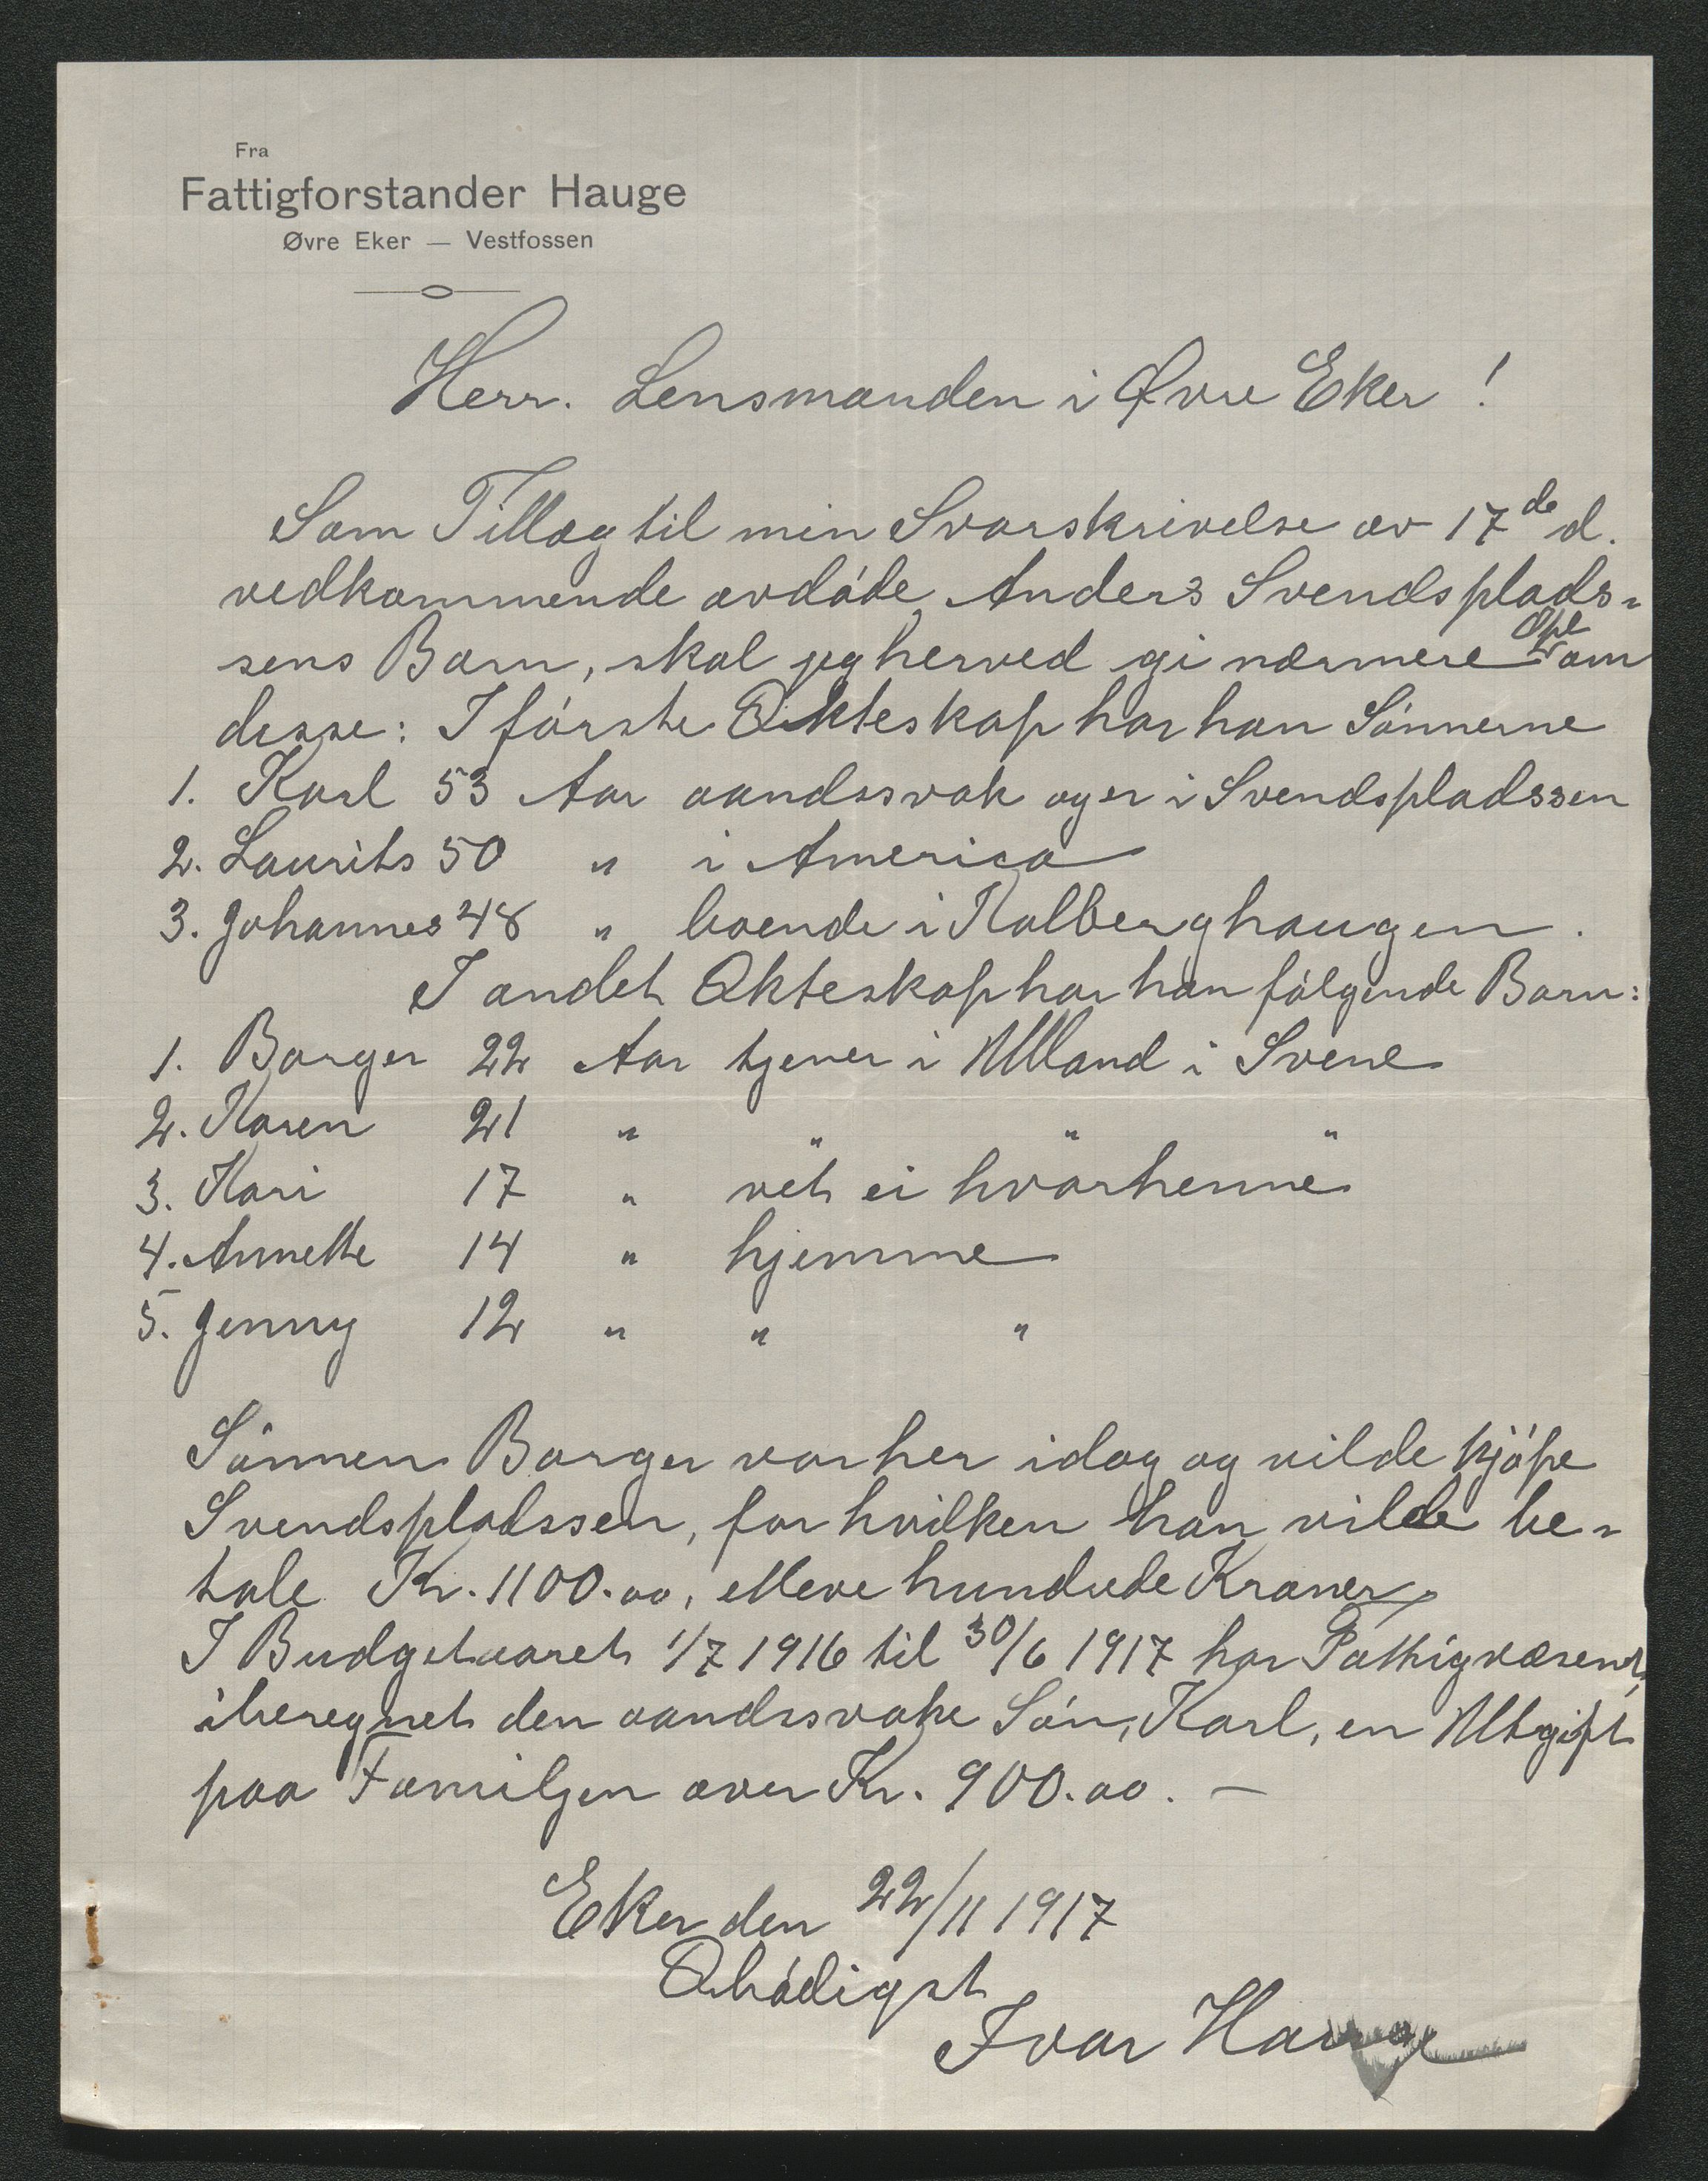 Fra
Fattigforstander Hauge
Øvre Eker — Vestfossen
Herr. Lensmanden i Øvre Eker !
Som Tillæg til min Svarskrivelse av 17de d.
vedkommende avdøde Anders Svendsplads-
sens Barn, skal jeg herved gi nærmere Opl om
disse: I første Ækteskap har han Sønnerne
1. Karl 53 Aar aandssvak og er i Svendspladssen
2. Laurits 50 " i America
3. Johannes 48 " boende i Kolberghaugen.
I andet Ækteskap har han følgende Barn:
1. Borger 22 Aar tjener i Ulland i Svene
2. Karen 21 " " " "
3. Kari 17 " vet ei hvorhenne
4. Annette 14 " hjemme
5. Jenny 12 " " "
Sønnen Borger var her idag og vilde kjøpe
Svendspladssen, for hvilken han vilde be-
tale Kr. 1100.00, elleve hundrede Kroner,
I Budgetaaret 1/7 1916 til 30/6 1917 har Fattigvæsenet,
iberegnet den aandssvake Søn, Karl, en Utgift
paa Familjen over Kr. 900.00. —
Eker den 22/11 1917
Ærbødigst
Ivar Hauge